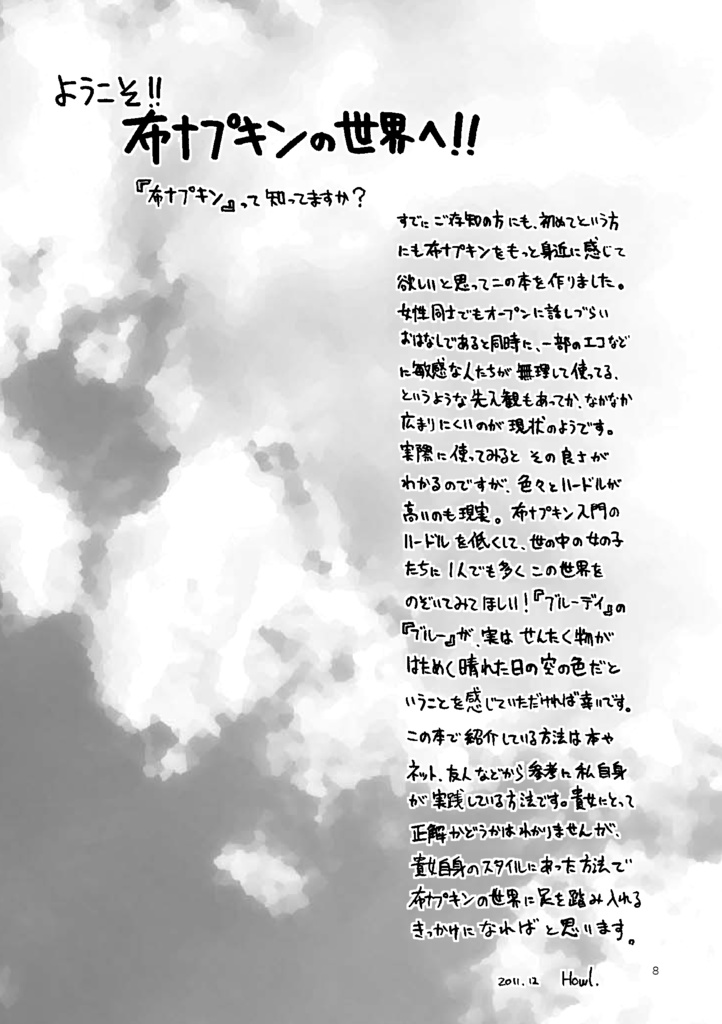 ようこそ!!
布ナプキンの世界へ!!
『布ナプキン』って知ってますか?
すでにご存知の方にも、初めてという方
にも布ナプキンをもっと身近に感じて
欲しいと思ってこの本を作りました。
女性同士でもオープンに話しづらい
おはなしであると同時に、一部のエコなど
に敏感な人たちが無理して使ってる、
というような先入観もあってか、なかなか
広まりにくいのが現状のようです。
実際に使ってみるとその良さが
わかるのですが、色々とハードルが
高いのも現実。布ナプキン入門の
ハードルを低くして、世の中の女の子
たちに1人でも多くこの世界を
のぞいてみてほしい!『ブルーデイ』の
『ブルー』が、実はせんたく物が
はためく晴れた日の空の色だと
いうことを感じていただければ幸いです。
この本で紹介している方法は本や
ネット、友人などから参考に私自身
が実践している方法です。貴女にとって
正解かどうかはわかりませんが、
貴女自身のスタイルにあった方法で
布ナプキンの世界に足を踏み入れる
きっかけになればと思います。
2011.12 Howl.
8